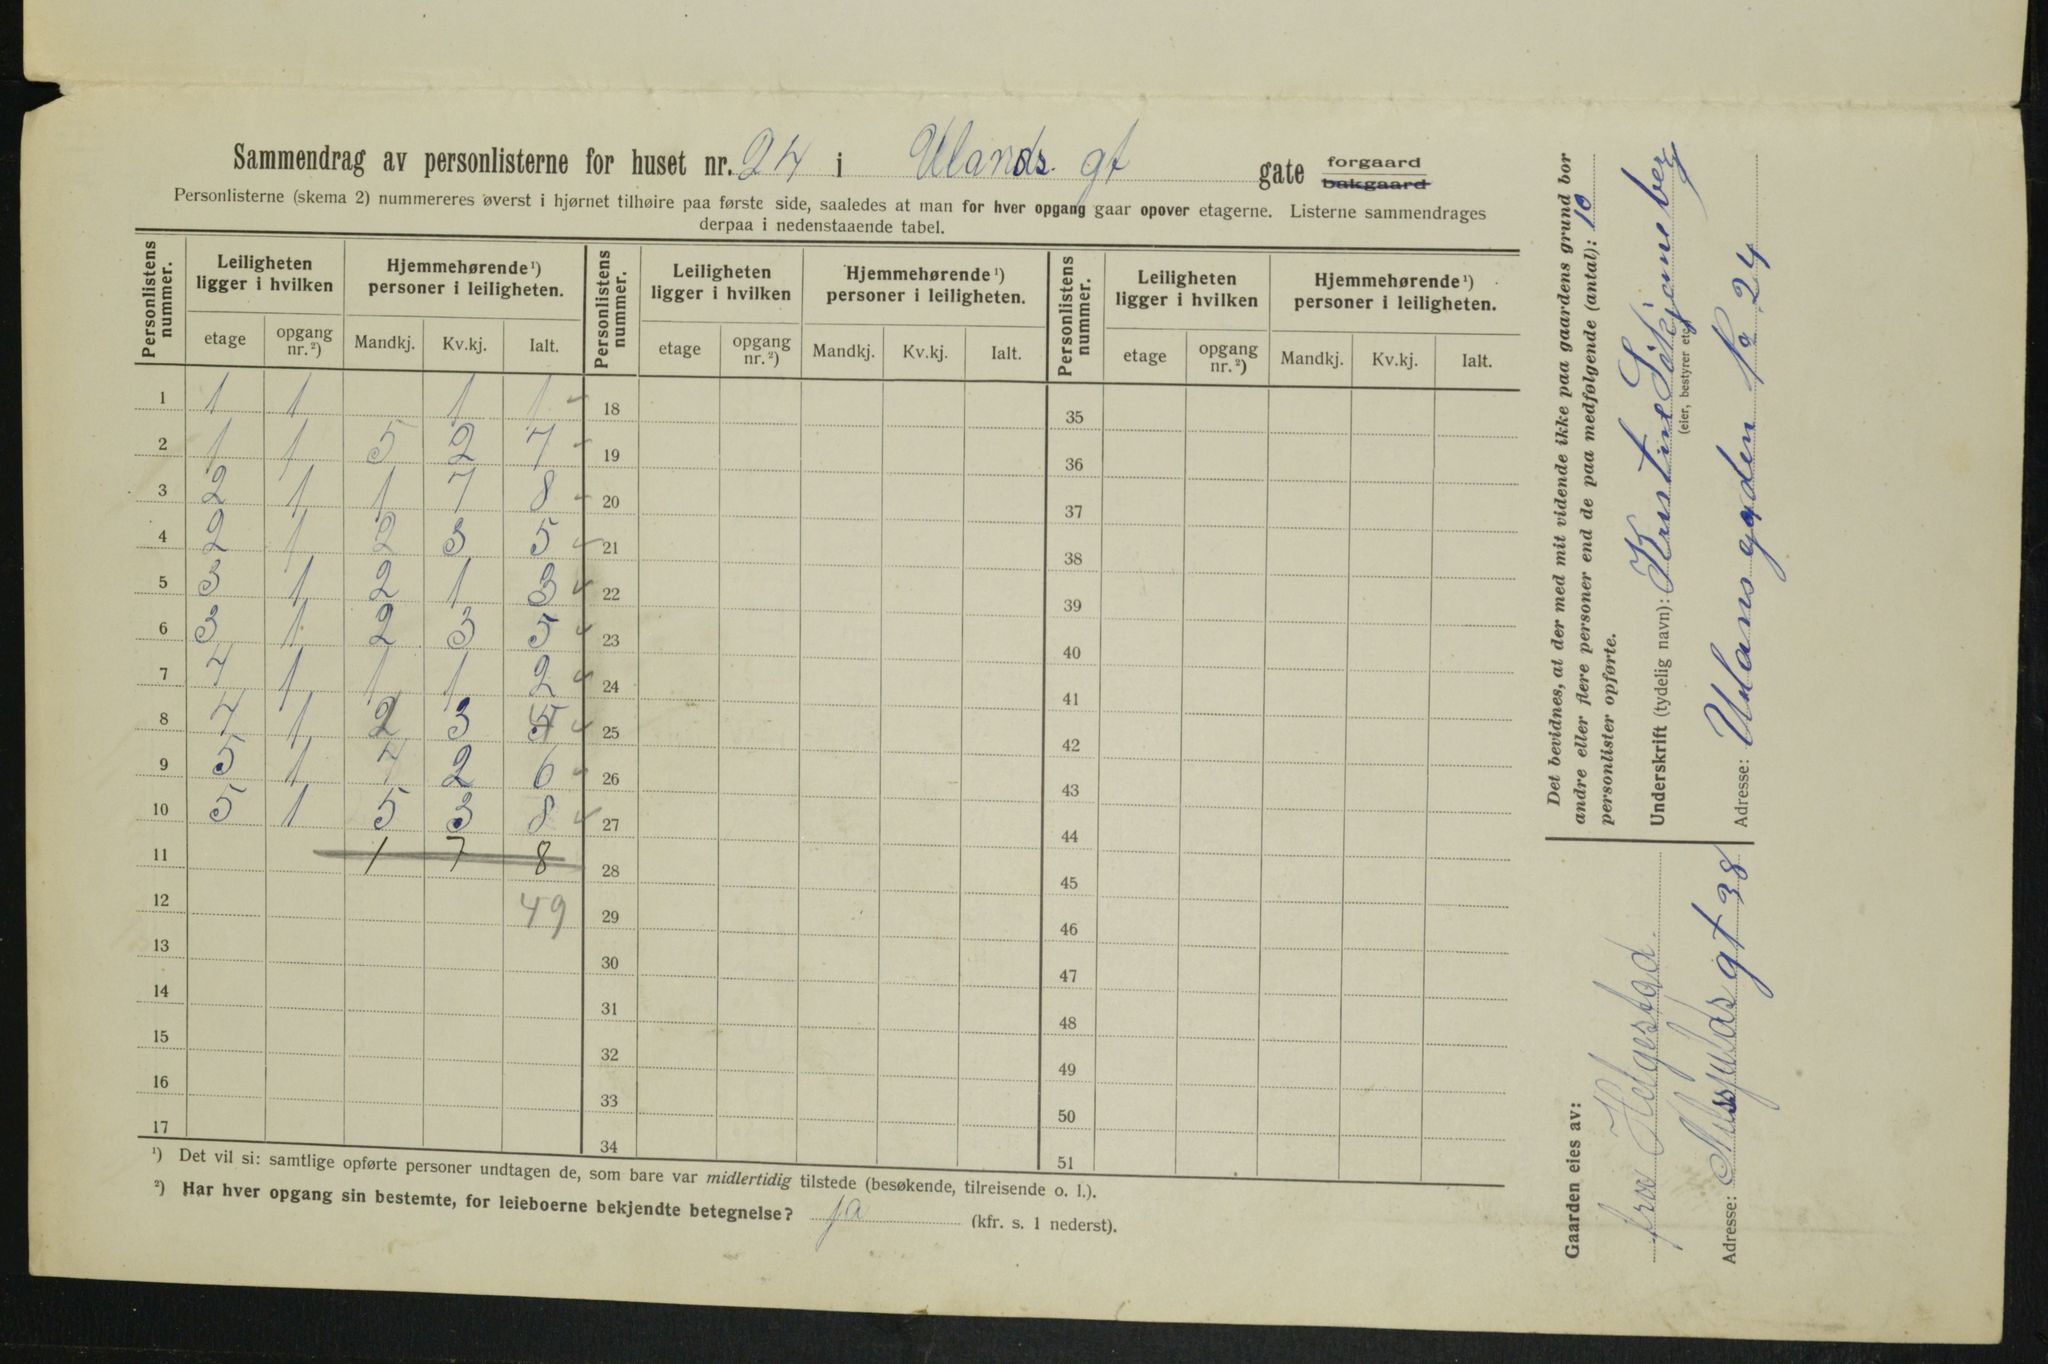 Sammendrag av personlisterne for huset nr. 24 i Ulands gt gate forgaard bakgaard
Personlisterne (skema 2) nummereres øverst i hjørnet tilhøire paa første side, saaledes at man for hver opgang gaar opover etagerne. Listerne sammendrages
derpaa i nedenstaaende tabel.
Personlistens nummer. Leiligheten ligger i hvilken Hjemmehørende¹) personer i leiligheten. Personlistens nummer. Leiligheten ligger i hvilken Hjemmehørende¹) personer i leiligheten. Personlistens nummer. Leiligheten ligger i hvilken Hjemmehørende¹) personer i leiligheten.
etage opgang nr.²) Mandkj. Kv.kj. Ialt. etage opgang nr.²) Mandkj. Kv.kj. Ialt. etage opgang nr.²) Mandkj. Kv.kj. Ialt.
1 1 1 1 1 18 35
2 1 1 5 2 7 19 36
3 2 1 1 7 8 20 37
4 2 1 2 3 5 21 38
5 3 1 2 1 3 22 39
6 3 1 2 3 5 23 40
7 4 1 1 1 2 24 41
8 4 1 2 3 25 42
9 5 1 4 2 6 26 43
10 5 1 5 3 8 27 44
11 1 7 8 28 45
12 49 29 46
13 30 47
14 31 48
15 32 49
16 33 50
17 34 51
¹) Det vil si: samtlige opførte personer undtagen de, som bare var midlertidig tilstede (besøkende, tilreisende o. l.).
²) Har hver opgang sin bestemte, for leieboerne bekjendte betegnelse? ja (kfr. s. 1 nederst).
Det bevidnes, at der med mit vidende ikke paa gaardens grund bor
andre eller flere personer end de paa medfølgende (antal): 10
personlister opførte.
Underskrift (tydelig navn): Kristine
(eier, bestyrer etc.)
Adresse: Ulansgaden No 24
Gaarden eies av:
frue Helgestad.
Adresse: gt 38